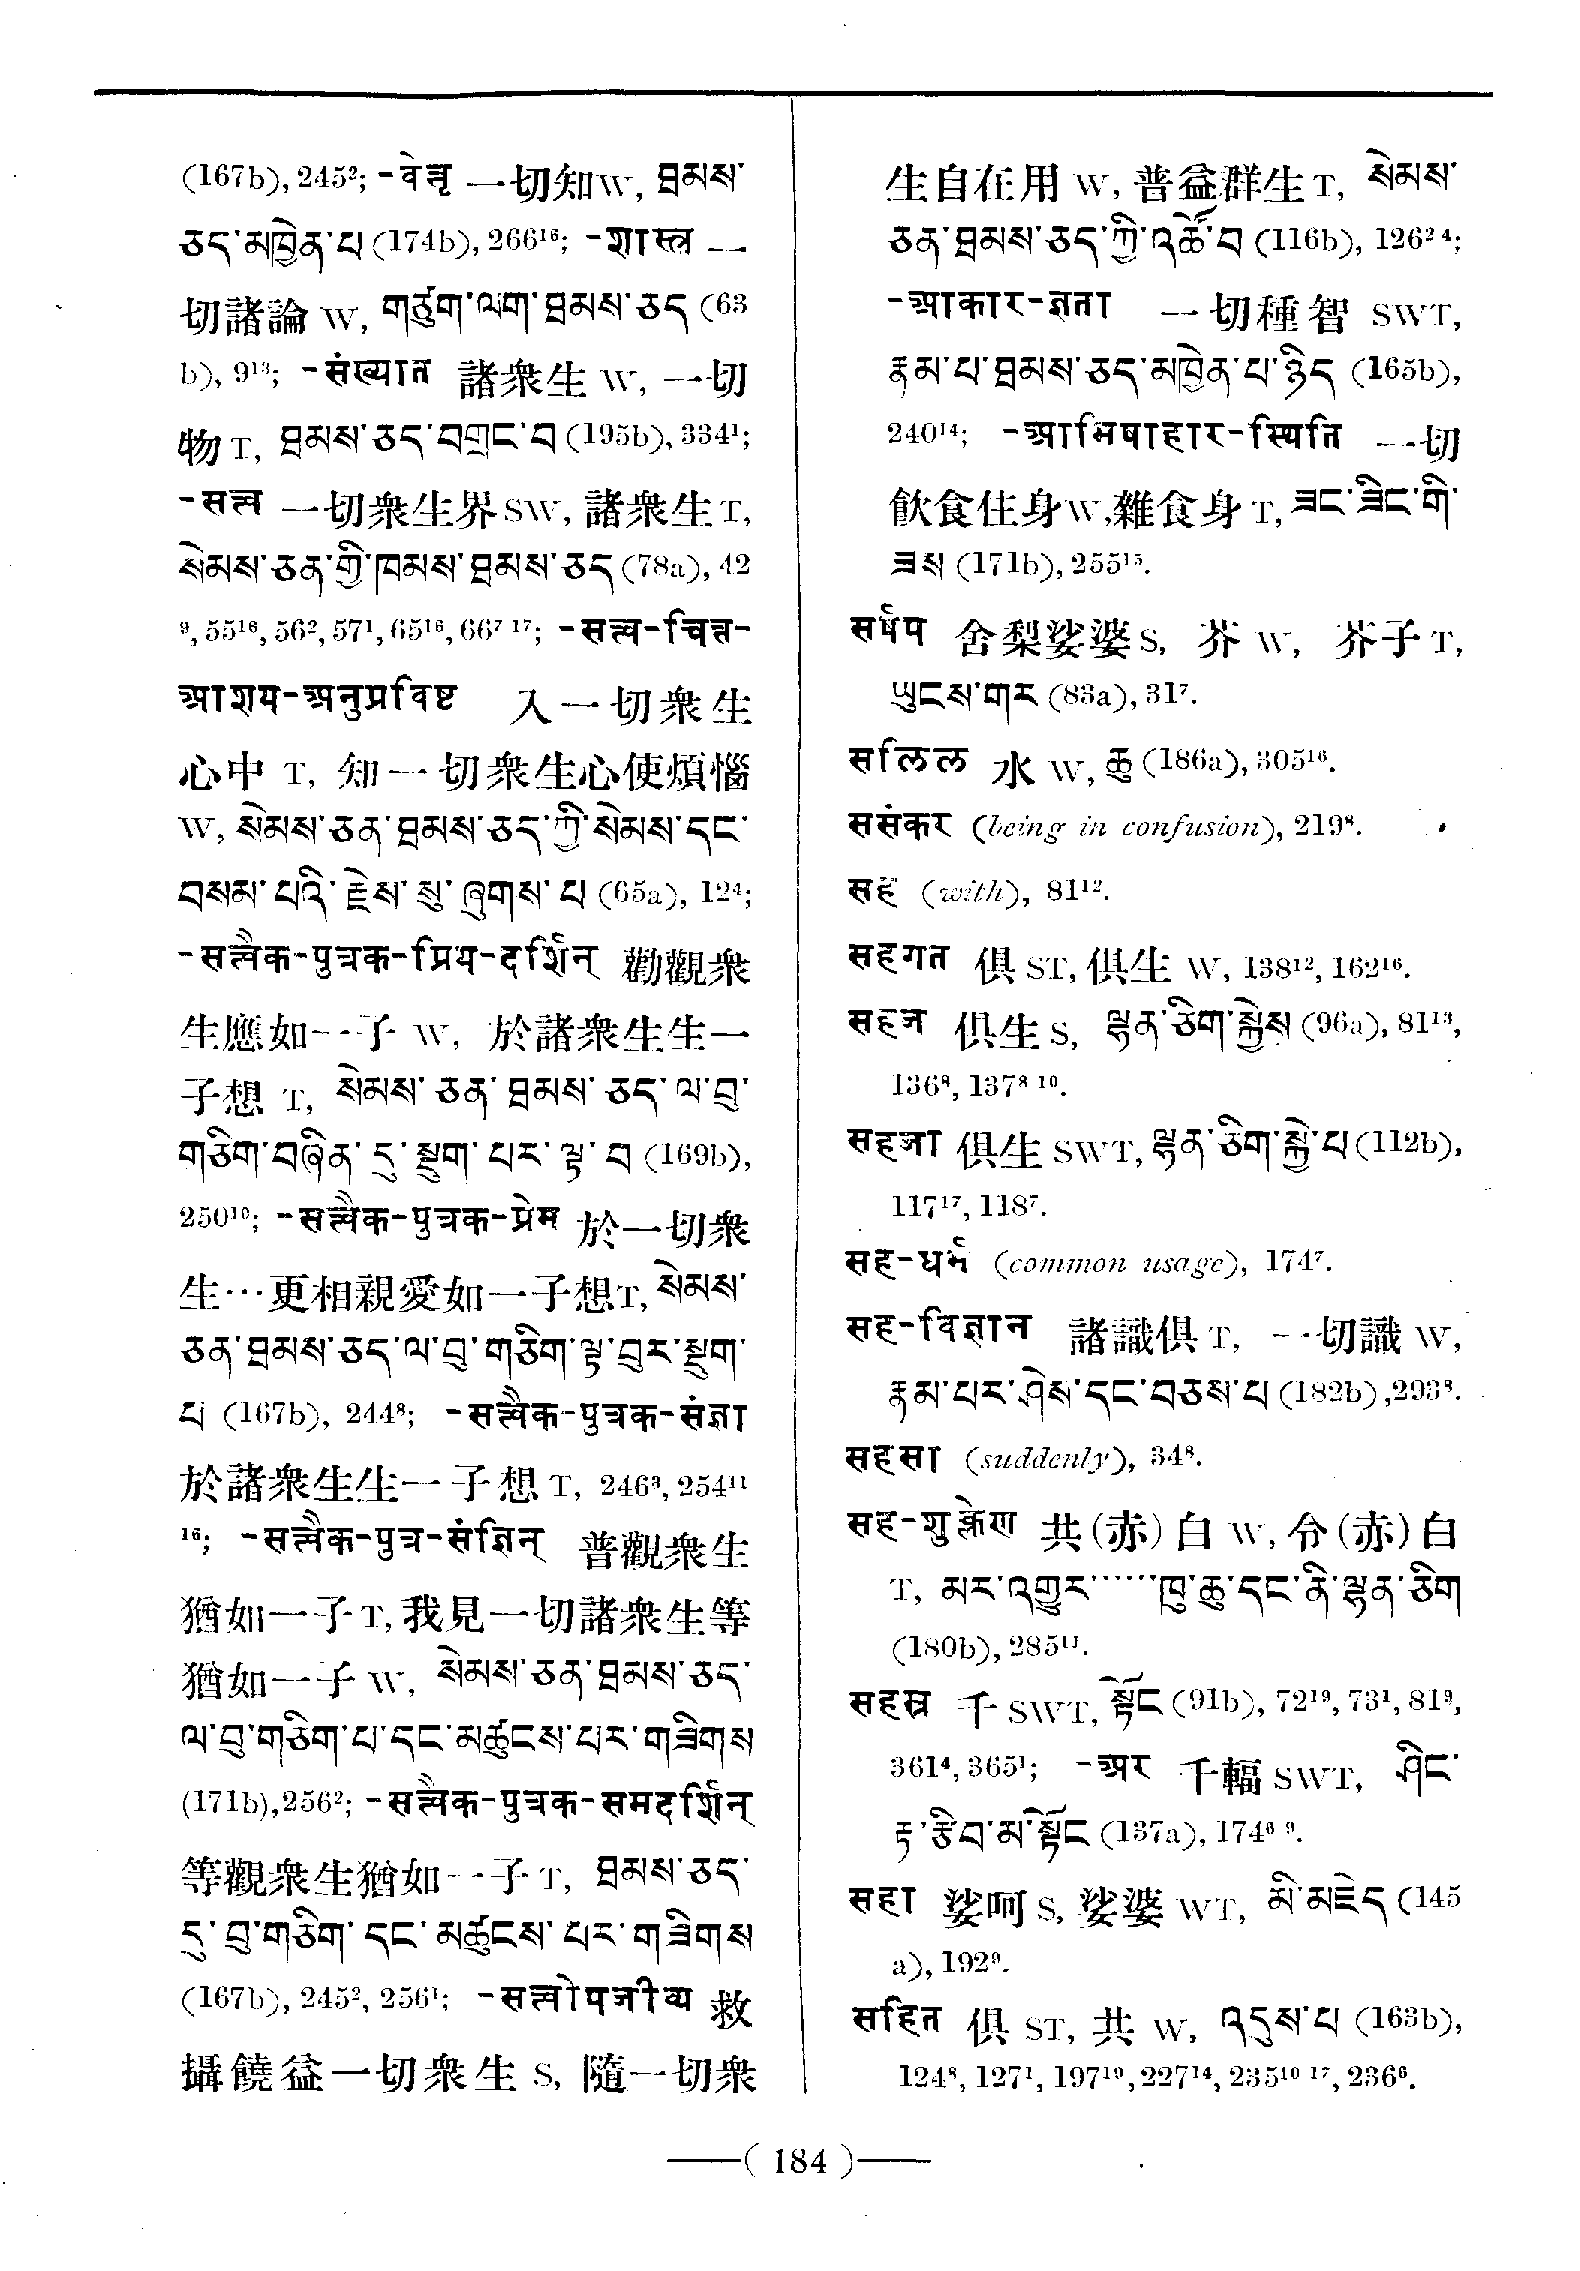 (167b), 245²; -वेत्तृ 一切知W, ཐམས་
ཅད་མཁྱེན་པ (174b), 266¹⁶; -शास्त्र 一
切諸論 W, གཙུག་ལག་ཐམས་ཅད (63
b), 9¹³; -संख्यात 諸衆生 W, 一切
物 T, ཐམས་ཅད་བགྲང་བ (195b), 334¹;
-सत्त्व 一切衆生界SW, 諸衆生T,
སེམས་ཅན་གྱི་ཁམས་ཐམས་ཅད (78a), 42
⁹, 55¹⁶, 56², 57¹, 65¹⁶, 66⁷ ¹⁷; -सत्त्व-चित्त-
आशय-अनुप्रविष्ट 入一切衆生
心中 T, 知一切衆生心使煩惱
W, སེམས་ཅན་ཐམས་ཅད་ཀྱི་སེམས་དང་
བསམ་པའི་རྗེས་སུ་ཞུགས་པ (65a), 12⁴;
-सत्त्वैक-पुत्रक-प्रिय-दर्शिन् 勸觀衆
生應如一子 W, 於諸衆生生一
子想 T, སེམས་ཅན་ཐམས་ཅད་ལ་བུ་
གཅིག་བཞིན་དུ་སྡུག་པར་ལྟ་བ (169b),
250¹⁰; -सत्त्वैक-पुत्रक-प्रेम 於一切衆
生…更相親愛如一子想T, སེམས་
ཅན་ཐམས་ཅད་ལ་བུ་གཅིག་ལྟ་བུར་སྡུག་
པ (167b), 244⁸; -सत्त्वैक-पुत्रक-संज्ञा
於諸衆生生一子想 T, 246³, 254¹¹
¹⁶; -सत्त्वैक-पुत्र-संज्ञिन् 普觀衆生
猶如一子T, 我見一切諸衆生等
猶如一子 W, སེམས་ཅན་ཐམས་ཅད་
ལ་བུ་གཅིག་པ་དང་མཚུངས་པར་གཟིགས
(171b), 256²; -सत्त्वैक-पुत्रक-समदर्शिन्
等觀衆生猶如一子 T, ཐམས་ཅད་
དུ་བུ་གཅིག་དང་མཚུངས་པར་གཟིགས
(167b), 245², 256¹; -सत्त्वोपजीव्य 救
攝饒益一切衆生 S, 隨一切衆
生自在用 W, 普益群生T, སེམས་
ཅན་ཐམས་ཅད་ཀྱི་འཚོ་བ (116b), 126² ⁴;
-आकार-ज्ञता 一切種智 SWT,
རྣམ་པ་ཐམས་ཅད་མཁྱེན་པ་ཉིད (165b),
240¹⁴; -आमिषाहार-स्थिति 一切
飲食住身W, 雜食身 T, ཟང་ཟིང་གི་
ཟས (171b), 255¹⁵.
सर्षप 舍梨娑婆S, 芥 W, 芥子T,
ཡུངས་གར (83a), 31⁷.
सलिल 水 W, ཆུ (186a), 305¹⁶.
ससंकर (being in confusion), 219⁸.
सह (with), 81¹².
सहगत 俱ST, 俱生 W, 138¹², 162¹⁶.
सहज 俱生S, ལྷན་ཅིག་སྐྱེས (96a), 81¹³,
136⁸, 137⁸ ¹⁰.
सहजा 俱生 SWT, ལྷན་ཅིག་སྐྱེ་པ (112b),
117¹⁷, 118⁷.
सह-धर्म (common usage), 174⁷.
सह-विज्ञान 諸識俱T, 一切識 W,
རྣམ་པར་ཤེས་དང་བཅས་པ (182b), 293⁸.
सहसा (suddenly), 34⁸.
सह-शुक्लेण 共(赤)白W, 令(赤)白
T, མར་འགྱུར་⋯⋯ཁུ་ཆུ་དང་ནི་ལྷན་ཅིག
(180b), 285¹¹.
सहस्र 千 SWT, སྟོང (91b), 72¹⁹, 73¹, 81⁹,
361⁴, 365¹; -अर 千輻SWT, ཤིང་
རྟ་རྩིབ་མ་སྟོང (137a), 174⁸ ⁹.
सहा 娑呵S, 娑婆 WT, མི་མཇེད (145
a), 192⁹.
सहित 俱 ST, 共 W, འདུས་པ (163b),
124⁸, 127¹, 197¹⁹, 227¹⁴, 235¹⁰ ¹⁷, 236⁶.
——( 184 )——